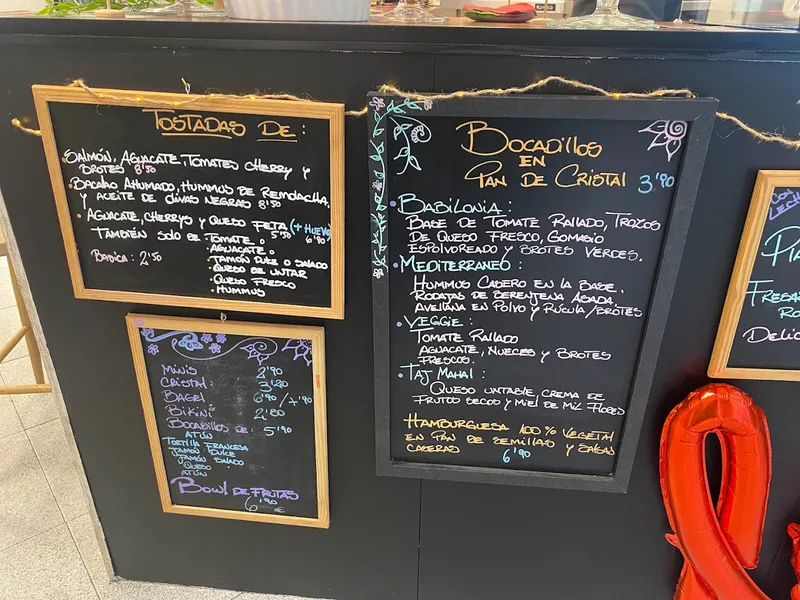 TOSTADAS DE:
SALMÓN, AGUACATE, TOMATES CHERRY Y
BROTES 8'50
BACALAO AHUMADO, HUMMUS DE REMOLACHA,
Y ACEITE DE OLIVAS NEGRAS 8'50
AGUACATE, CHERRYS Y QUESO FETA (+ HUEVO
5'50 6'90
TAMBIÉN SOLO DE: TOMATE
AGUACATE
JAMÓN DULCE O SALADO
QUESO DE UNTAR
QUESO FRESCO
HUMMUS
BÁSICA: 2'50
MINIS 2'90
CRISTAL 3'20
BAGEL
BIKINI 2'80
BOCADILLOS DE: 5'90
ATÚN
TORTILLA FRANCESA
JAMÓN DULCE
JAMÓN SALADO
QUESO
ATÚN
BOWL DE FRUTAS
6'90
BOCADILLOS
EN
PAN DE CRISTAL 3'90
BABILONIA:
BASE DE TOMATE RALLADO, TROZOS
DE QUESO FRESCO, GOMASIO
ESPOLVOREADO Y BROTES VERDES.
MEDITERRANEO:
HUMMUS CASERO EN LA BASE.
RODAJAS DE BERENJENA ASADA.
AVELLANA EN POLVO Y RÚCULA/BROTES
VEGGIE:
TOMATE RALLADO
AGUACATE, NUECES Y BROTES
FRESCOS.
TAJ MAHAL:
QUESO UNTABLE, CREMA DE
FRUTOS SECOS Y MIEL DE MIL FLORES
HAMBURGUESA 100% VEGETAL
EN PAN DE SEMILLAS Y SALSAS
CASERAS 6'90
CON